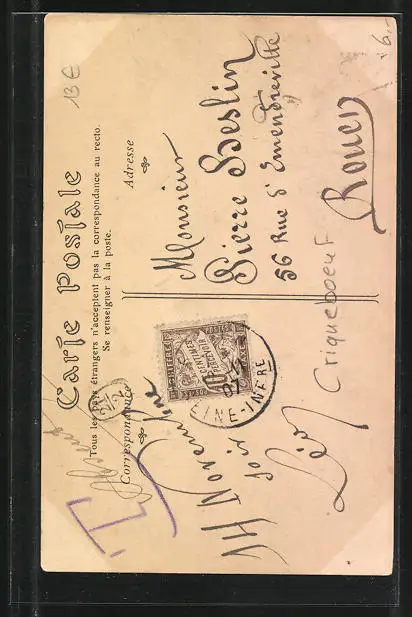 13 €
6.-
Carte Postale
Tous les pays étrangers n'acceptent pas la correspondance au recto.
Se renseigner à la poste.
Correspondance
Adresse
T
14 Novembre
soir
Léon
CENTIMES
10
À PERCEVOIR
POSTES
INE-INFRE
Monsieur
Pierre Heslin
56 Rue d'Emendreville
Rouen
Criqueboeuf